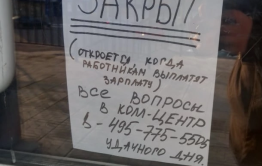 ЗАКРЫТ
(ОТКРОЕТСЯ, КОГДА
РАБОТНИКАМ ВЫПЛАТЯТ
ЗАРПЛАТУ)
ВСЕ ВОПРОСЫ
В КОЛЛ-ЦЕНТР
8-495-775-5505
УДАЧНОГО ДНЯ.